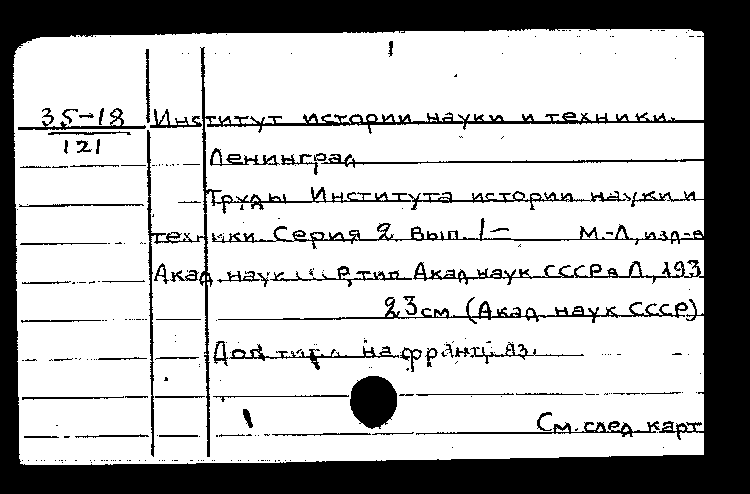 35-18
121
Институт истории науки и техники.
Ленинград
Труды Института истории науки и
техники. Серия 2 вып. 1- М.-Л, изд-в
Акад. наук тип Акад наук СССР в Л., 193
23 см. (Акад. наук СССР)
Доп. титл. на франц. яз.
См. след. карт